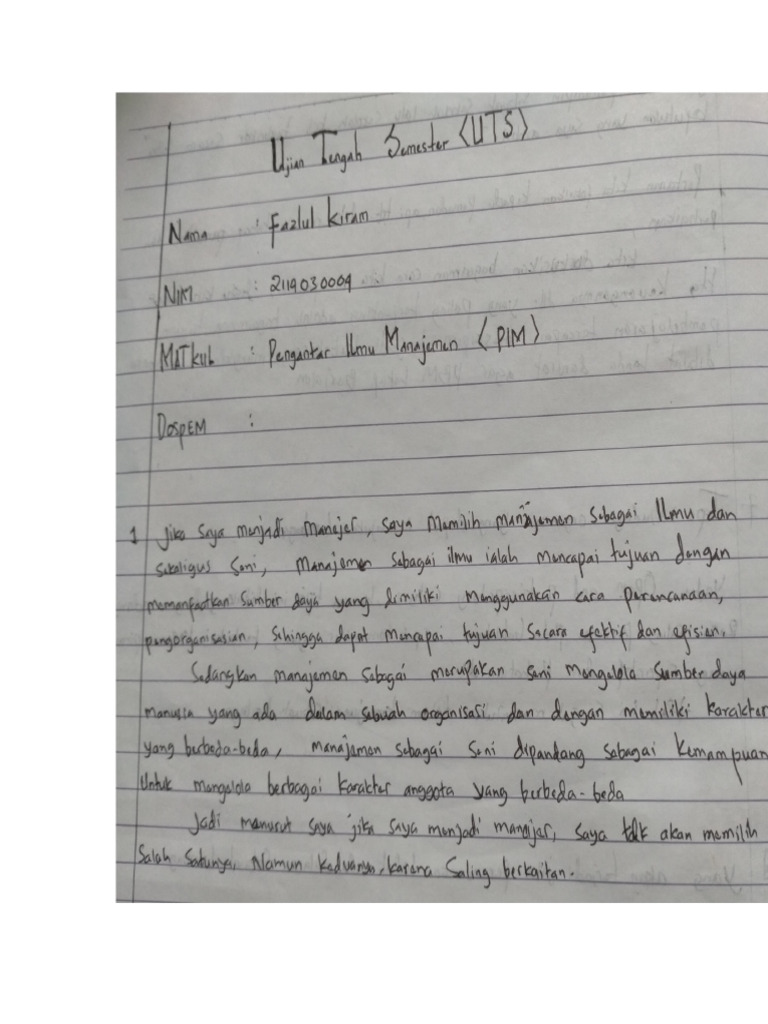 Ujian Tengah Semester <UTS>
Nama : Fazlul Kiram
NIM : 2119030009
MATkub : Pengantar Ilmu Manajemen <PIM>
DospEM :
1 Jika saya menjadi manajer, saya memilih manajemen sebagai Ilmu dan
sekaligus Seni, manajemen sebagai ilmu ialah mencapai tujuan dengan
memanfaatkan sumber daya yang dimiliki menggunakan cara perencanaan,
pengorganisasian, Sehingga dapat mencapai tujuan Secara efektif dan efisien.
Sedangkan manajemen sebagai merupakan seni mengelola sumber daya
manusia yang ada dalam sebuah organisasi dan dengan memiliki karakter
yang berbeda-beda, manajemen sebagai Seni dipandang sebagai kemampuan
Untuk mengelola berbagai karakter anggota yang berbeda-beda
Jadi menurut saya jika saya menjadi manajer, saya tdk akan memilih
Salah Satunya, Namun keduanya, karena Saling berkaitan.